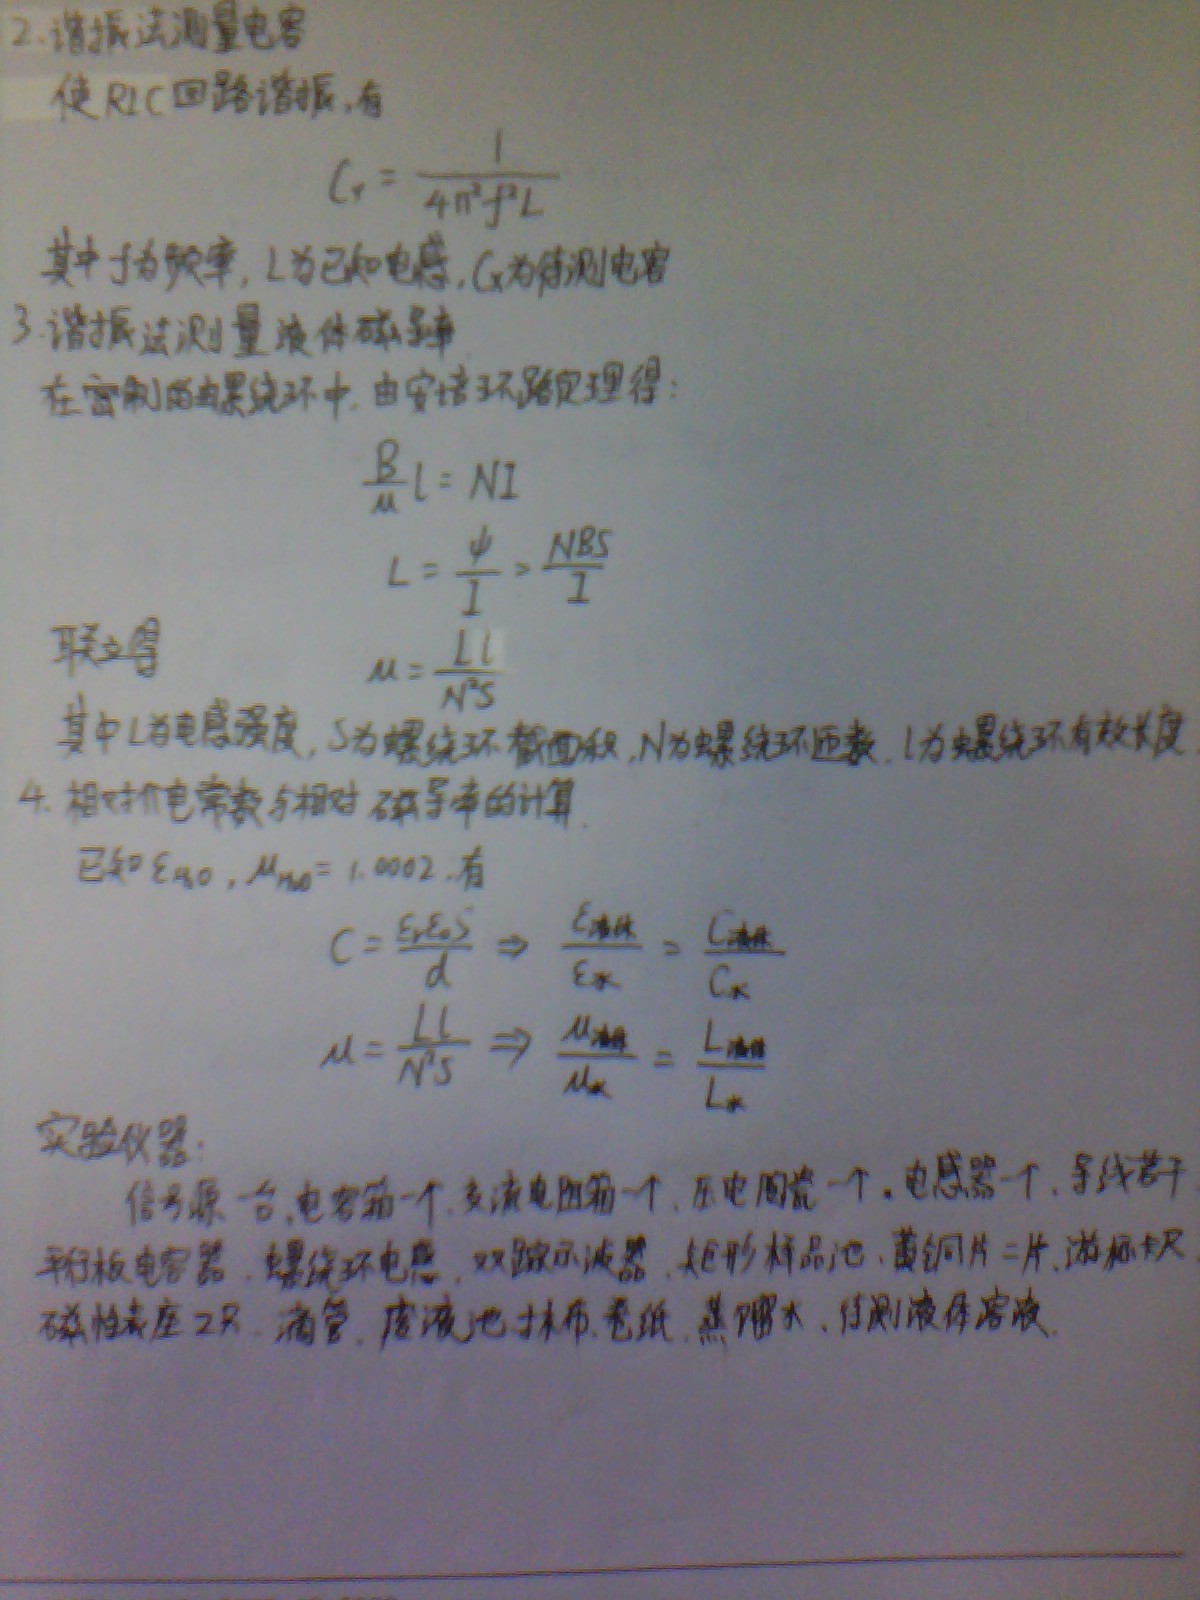 2.谐振法测量电容
使RLC回路谐振,有
Cx = 1/(4π²f²L)
其中f为频率, L为已知电感, Cx为待测电容
3.谐振法测量液体磁导率
在密制的螺绕环中,由安培环路定理得:
B/μ l = NI
L = ψ/I = NBS/I
联立得 μ = Ll/(N²S)
其中L为电感强度, S为螺绕环截面积, N为螺绕环匝数, l为螺绕环有效长度
4.相对介电常数与相对磁导率的计算
已知ε_H₂O, μ_H₂O = 1.0002.有
C = εrε0S/d ⇒ ε液体/ε水 = C液体/C水
μ = Ll/(N²S) ⇒ μ液体/μ水 = L液体/L水
实验仪器:
信号源一台、电容箱一个、交流电阻箱一个、压电陶瓷一个、电感器一个、导线若干
平行板电容器、螺绕环电感、双踪示波器、矩形样品池、黄铜片二片、游标卡尺
磁性表座2只、滴管、废液池、抹布、卷纸、蒸馏水、待测液体溶液.